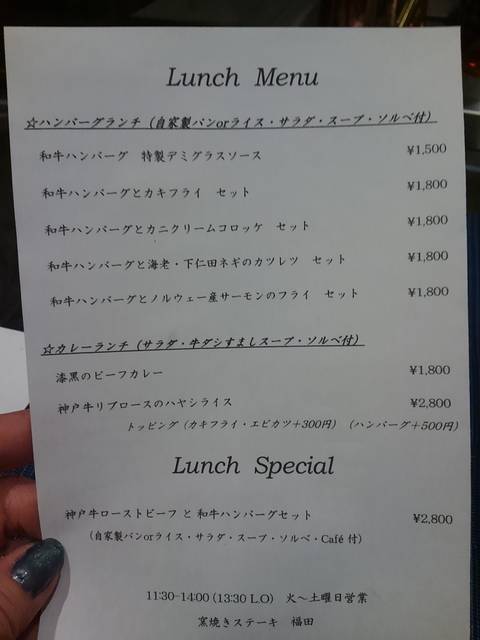 Lunch Menu
☆ハンバーグランチ（自家製パンorライス・サラダ・スープ・ソルベ付）
和牛ハンバーグ　特製デミグラスソース ¥1,500
和牛ハンバーグとカキフライ　セット ¥1,800
和牛ハンバーグとカニクリームコロッケ　セット ¥1,800
和牛ハンバーグと海老・下仁田ネギのカツレツ　セット ¥1,800
和牛ハンバーグとノルウェー産サーモンのフライ　セット ¥1,800
☆カレーランチ（サラダ・牛ダシすましスープ・ソルベ付）
漆黒のビーフカレー ¥1,800
神戸牛リブロースのハヤシライス ¥2,800
トッピング（カキフライ・エビカツ＋300円）（ハンバーグ＋500円）
Lunch Special
神戸牛ローストビーフ と 和牛ハンバーグセット ¥2,800
（自家製パンorライス・サラダ・スープ・ソルベ・Café 付）
11:30-14:00 (13:30 L.O)　火～土曜日営業
窯焼きステーキ　福田